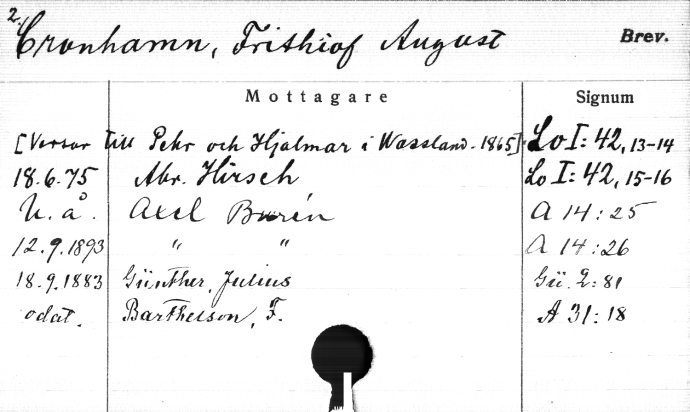 2.
Cronhamn, Frithiof August Brev.
Mottagare Signum
[Versar till Pehr och Hjalmar i Wassland. 1865]. Lo I: 42, 13-14
18.6.75 Abr. Hirsch Lo I: 42, 15-16
U. å. Axel Burén A 14:25
12.9.1893 " " A 14:26
18.9.1883 Günther, Julius Gü. 2:81
odat. Barthelson, F. A 31:18